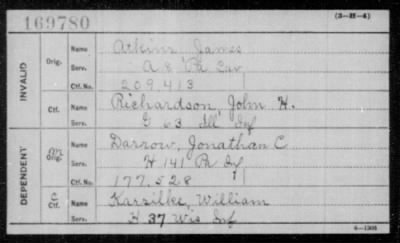 169780
(3-H-4)
INVALID
Orig.
Name Atkins, James
Serv. A 8 Pa Cav
Ctf. No. 209,413
Ctf.
Name Richardson, John H.
Serv. G 63 Ill Inf
DEPENDENT
M Orig.
Name Darrow, Jonathan C
Serv. H 141 Pa Inf
Ctf. No. 177,528
C Ctf.
Name Karzilke, William
Serv. H 37 Wis Inf